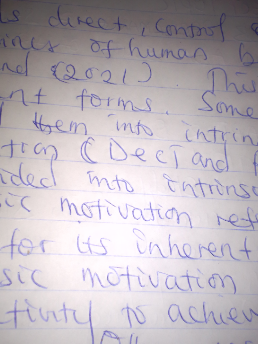 s direct, control
of human b
nd (2021). This
nt forms. Some
them into intrin
tion (Deci and
ided into intrins
sic motivation ref
for its inherent
sic motivation
tivity to achiev